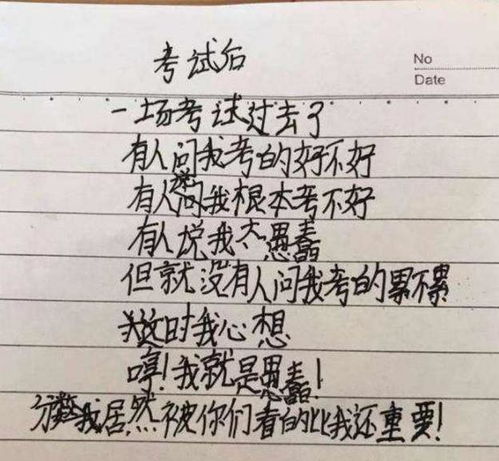 考试后
No
Date
一场考试过去了
有人问我考的好不好
有人说我根本考不好
有人说我太愚蠢
但就没有人问我考的累不累
这时我心想
哼!我就是愚蠢!
分数居然被你们看的比我还重要!